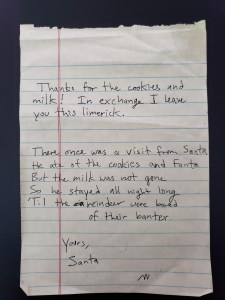 Thanks for the cookies and
milk! In exchange I leave
you this limerick.
There once was a visit from Santa
He ate of the cookies and Fanta
But the milk was not gone
So he stayed all night long
'Til the reindeer were bored
of their banter
Yours,
Santa